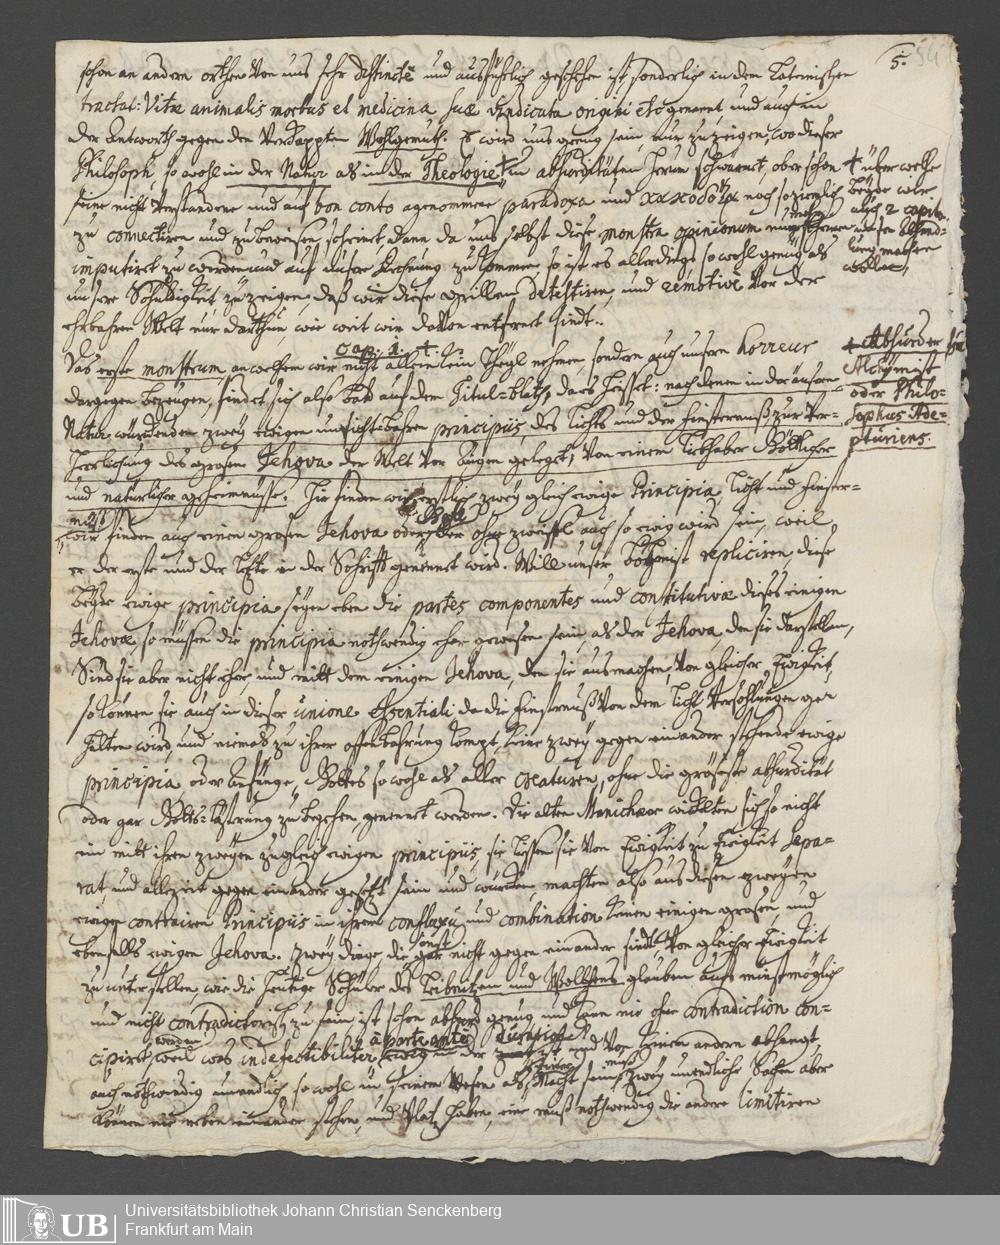 5. 54
schon an andern orthen von uns sehr distincte und ausführlich geschehen ist, sonderlich in dem Lateinischen
tractat: Vitæ animalis morbus et medicina suæ vindicata origini etc genannt, und auch in
der Antworth gegen den Verkappten Wohlgemuth. Es wird uns genug sein, nur zu zeigen, wo dieser
Philosoph, so wohl in der Natur als in der Theologie + in absurditäten herum schwärmet, aber schon
+ über welche
beyde wir
auch 2 capita
machen
wollen,
seine nicht verstandene und auf bon conto agenommene paradoxa und noch so ziemlich
zu connectiren und zu beweisen scheinet dann da uns selbst diese monstra opinionum
imputiret zu werden und auf unsere Rechnung zu kommen, so ist es allerdings so wohl genug als
unsere Schuldigkeit, zu zeigen, daß wir diese grillen detestiren, und remotive vor der
ehrbahren Welt nur darthun, wie weit wir davon entfernt sindt.
Cap. 1. +.
Das erste monstrum, an welchem wir nicht allein kein theil nehmen, sondern auch unsern horreur
+ Absurder
Alchymist
oder Philo=
sophus Ade=
pturiens.
dargegen bezeugen, findet sich also bald auf dem Titul=blath, da es heisset: nach denen in der äusern
Natur würckenden zwey ewigen unsichtbahren principiis, des lichts und der finsternuß zur Ver=
herrlichung des grosen Jehova der Welt vor Augen gelegt, von einem liebhaber Göttlicher
und natürlicher geheimnüsse. Hie finden wir erstlich zwey gleich ewige Principia, licht und finster=
nüß
wir finden auch einen grosen Jehova oder Gott der ohne zweiffel auch so ewig wird sein, weil
er der erste und der letzte in der Schrifft genennet wird. Will unser repliciren, diese
beyde ewige principia seyen eben die partes componentes und constitutivæ dieses einigen
Jehovæ, so müssen die principia nothwendig eher gewesen sein, als der Jehova, den sie darstellen,
Sind sie aber nicht eher, und mitt dem einigen Jehova, den sie ausmachen, von gleicher Ewigkeit,
so können sie auch in dieser unione Essentiali da die finsternuß von dem licht verschlungen ge
halten wird, und niemals zu ihrer offenbahrung kompt, keine zwey gegen einander stehende ewige
principia oder Anfänge, Gottes so wohl als aller creaturen, ohne die gröseste absurdität
oder gar Gotts=lästerung zu begehen, genennet werden. Die alten Manichæer wickelten sich so nicht
ein mitt ihren zweyen zugleich ewigen principiis, sie liessen sie von Ewigkeit zu Ewigkeit sepa=
rat, und allezeit gegen einander gesetzt sein und würcken, machten also aus diesen zweyen
ewigen contrairen Principiis in ihrem confluxu und combination keinen einigen grosen, und
ebenfalls ewigen Jehova. zwey dinge, die sonst gar nicht gegen einander sindt, von gleicher Ewigkeit
zu unterstellen, wie die heutige Schüler des Leibnitzen und Wolffens glauben auffs minst möglich
und nicht contradictorisch zu sein ist schon absurd genug und kann nie ohne contradiction con=
cipiret werden, weil was indefectibiliter à parte ante ewig in der duration ist und von keinem andern abhangt,
auch nothwendig unendlich so wohl in seinem Wesen als Macht sein muß, zwey unendliche Sachen aber
können nie neben einander stehen, und Platz haben, eine muß nothwendig die andere limitiren
Universitätsbibliothek Johann Christian Senckenberg
Frankfurt am Main
UB